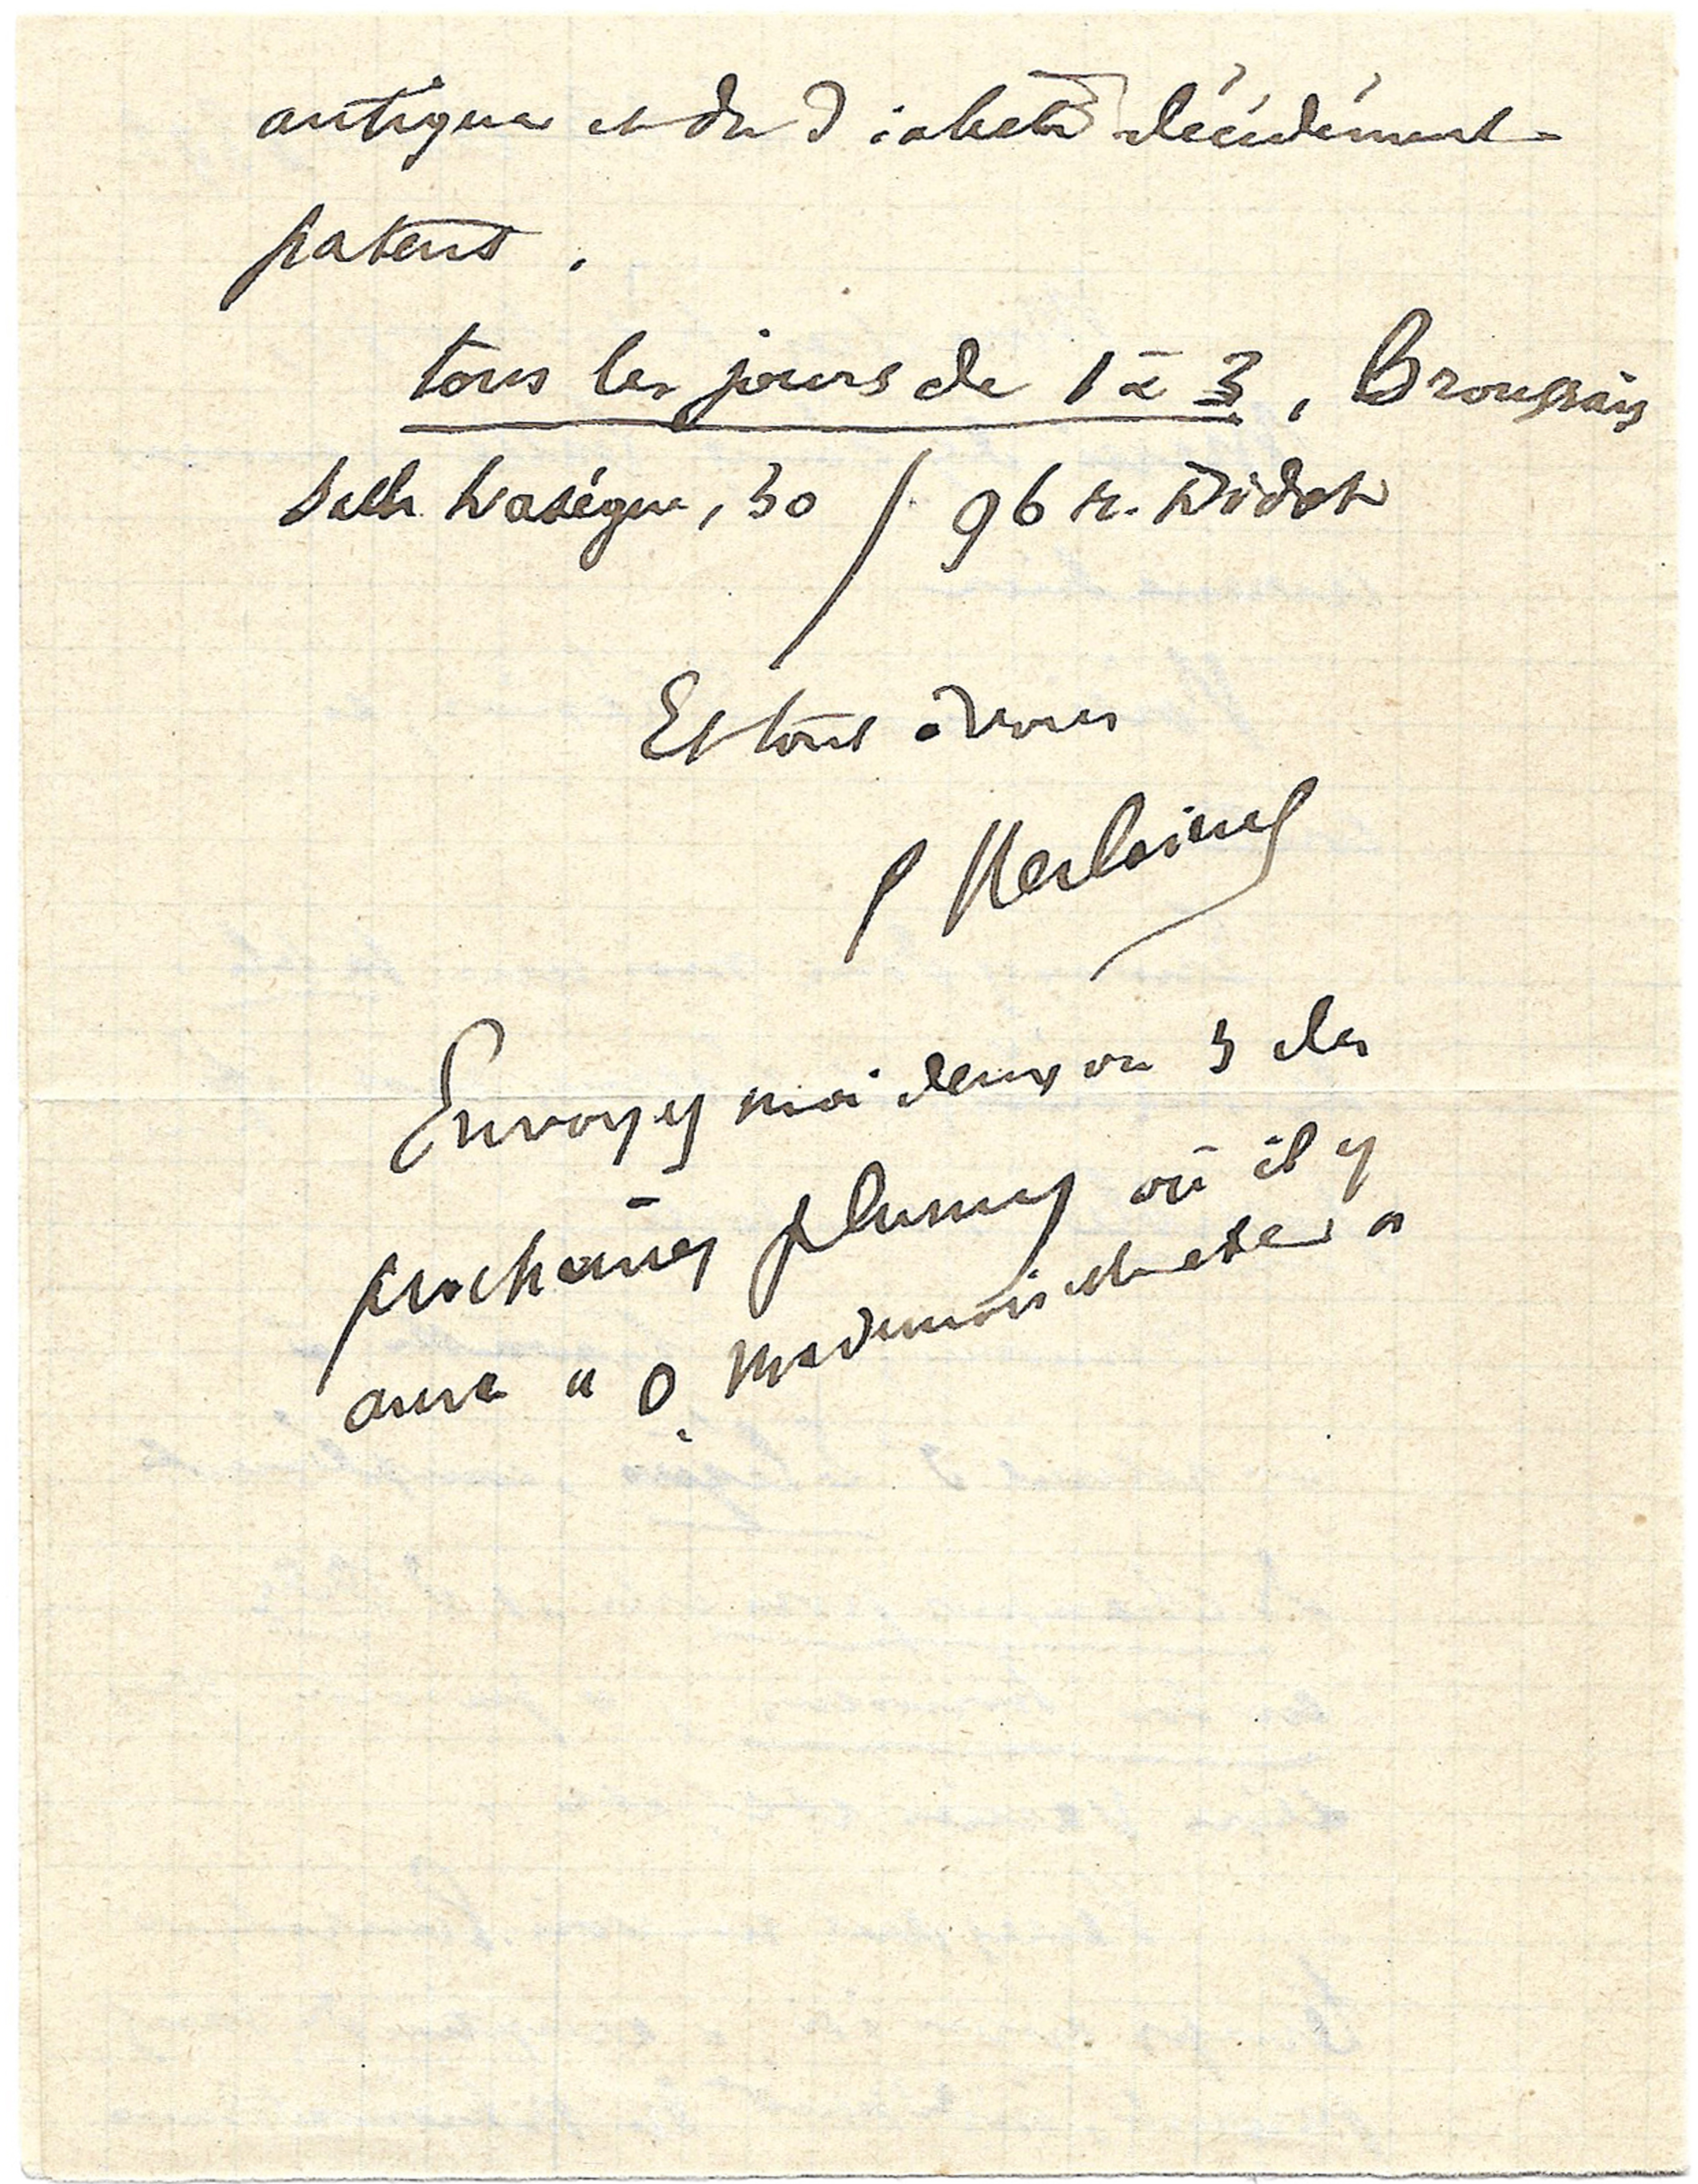 antiques et du diabète décidément
patent.
tous les jours de 1 à 3, Broussais
Salle Lasègue, 30 / 96 r. Didot
Et tout à vous
P Verlaine
Envoyez moi deux ou 3 des
prochaines plumes où il y
aura " O Mesdemoiselles "